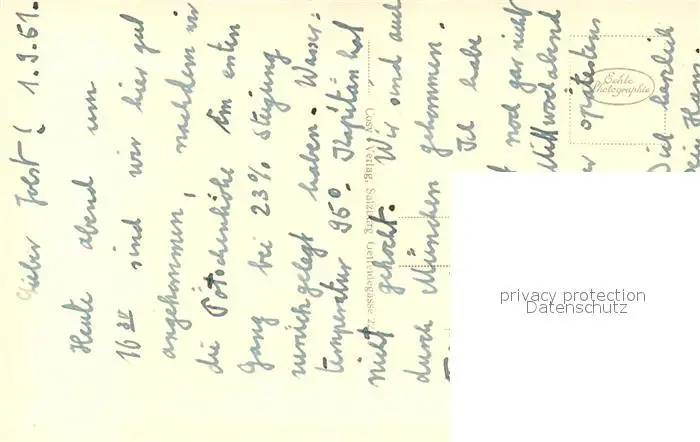 Lieber Jobst! 1.9.61.
Heute abend um
16 30 sind wir hier gut
angekommen, nachdem wir
die Pötschenhöhe im ersten
Gang bei 23% Steigung
zurückgelegt haben. Wasser=
temperatur 95°. Kapitän hat
nicht gekocht. Wir sind auch
durch München gekommen.
Ich habe
noch gar nicht
Mittwochabend
spätestens
Dich herzlich
Dein Hans
Cosy Verlag, Salzburg, Getreidegasse 2
Echte
Photographie
privacy protection
Datenschutz